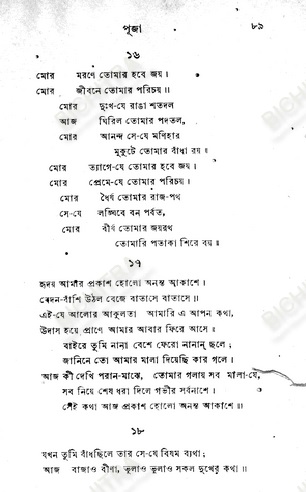 পূজা ৮৯
১৬
মোর মরণে তোমার হবে জয়।
মোর জীবনে তোমার পরিচয়॥
মোর দুঃখ-যে রাঙা শতদল
আজ ঘিরিল তোমার পদতল,
মোর আনন্দ সে-যে মণিহার
মুকুটে তোমার বাঁধা রয়॥
মোর ত্যাগে-যে তোমার হবে জয়।
মোর প্রেমে-যে তোমার পরিচয়।
মোর ধৈর্য তোমার রাজ-পথ
সে-যে লঙ্ঘিবে বন পর্বত,
মোর বীর্য তোমার জয়রথ
তোমারি পতাকা শিরে বয়॥
১৭
হৃদয় আমার প্রকাশ হোলো অনন্ত আকাশে।
বেদন-বাঁশি উঠল বেজে বাতাসে বাতাসে॥
এই-যে আলোর আকুলতা আমারি এ আপন কথা,
উদাস হয়ে প্রাণে আমার আবার ফিরে আসে॥
বাইরে তুমি নানা বেশে ফেরো নানান্ ছলে;
জানিনে তো আমার মালা দিয়েছি কার গলে।
আজ কী দেখি পরান-মাঝে, তোমার গলায় সব মালা-যে,
সব নিয়ে শেষ ধরা দিলে গভীর সর্বনাশে।
সেই কথা আজ প্রকাশ হোলো অনন্ত আকাশে॥
১৮
যখন তুমি বাঁধছিলে তার সে-যে বিষম ব্যথা;
আজ বাজাও বীণা, ভুলাও ভুলাও সকল দুখের কথা॥